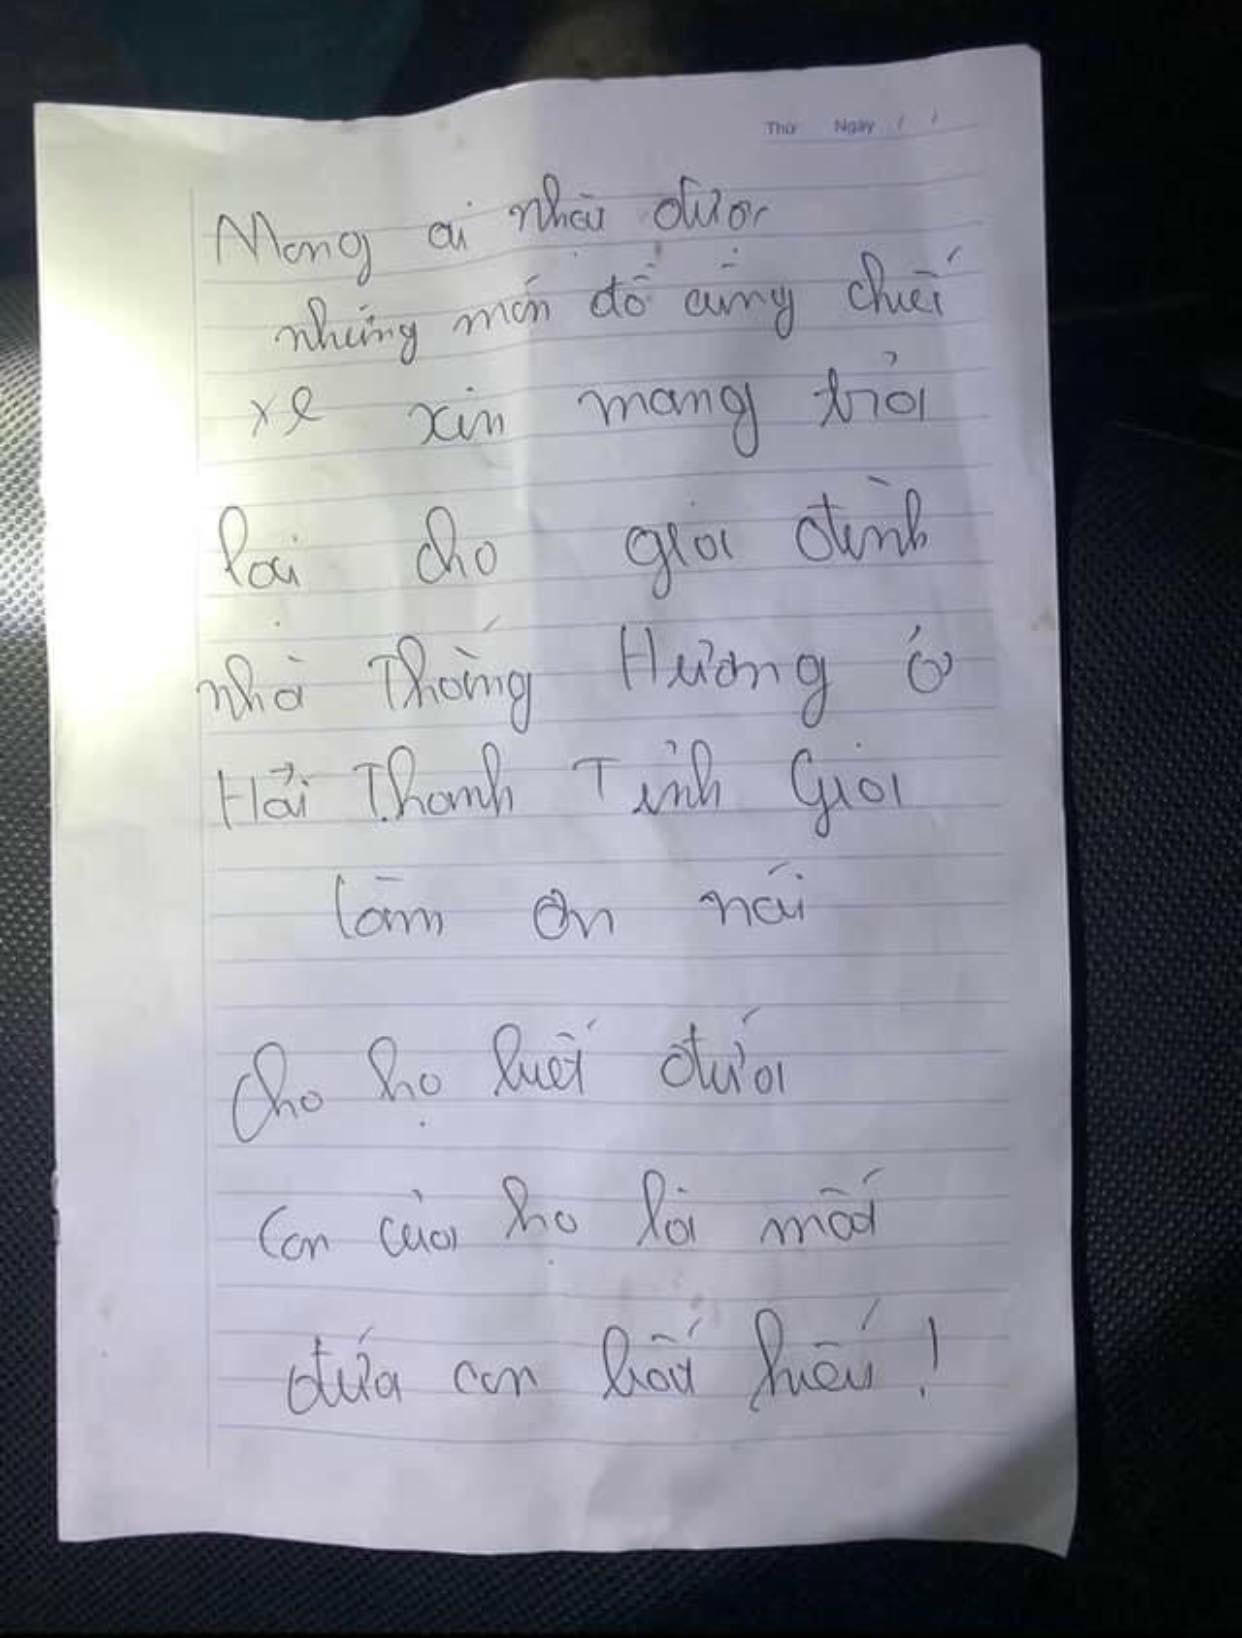 Thứ Ngày / /
Mong ai nhặt được
những món đồ cùng chiếc
xe xin mang trả
lại cho gia đình
nhà Thắng Hương ở
Hải Thanh Tĩnh Gia
làm ơn nói
cho họ biết đứa
con của họ là một
đứa con bất hiếu!